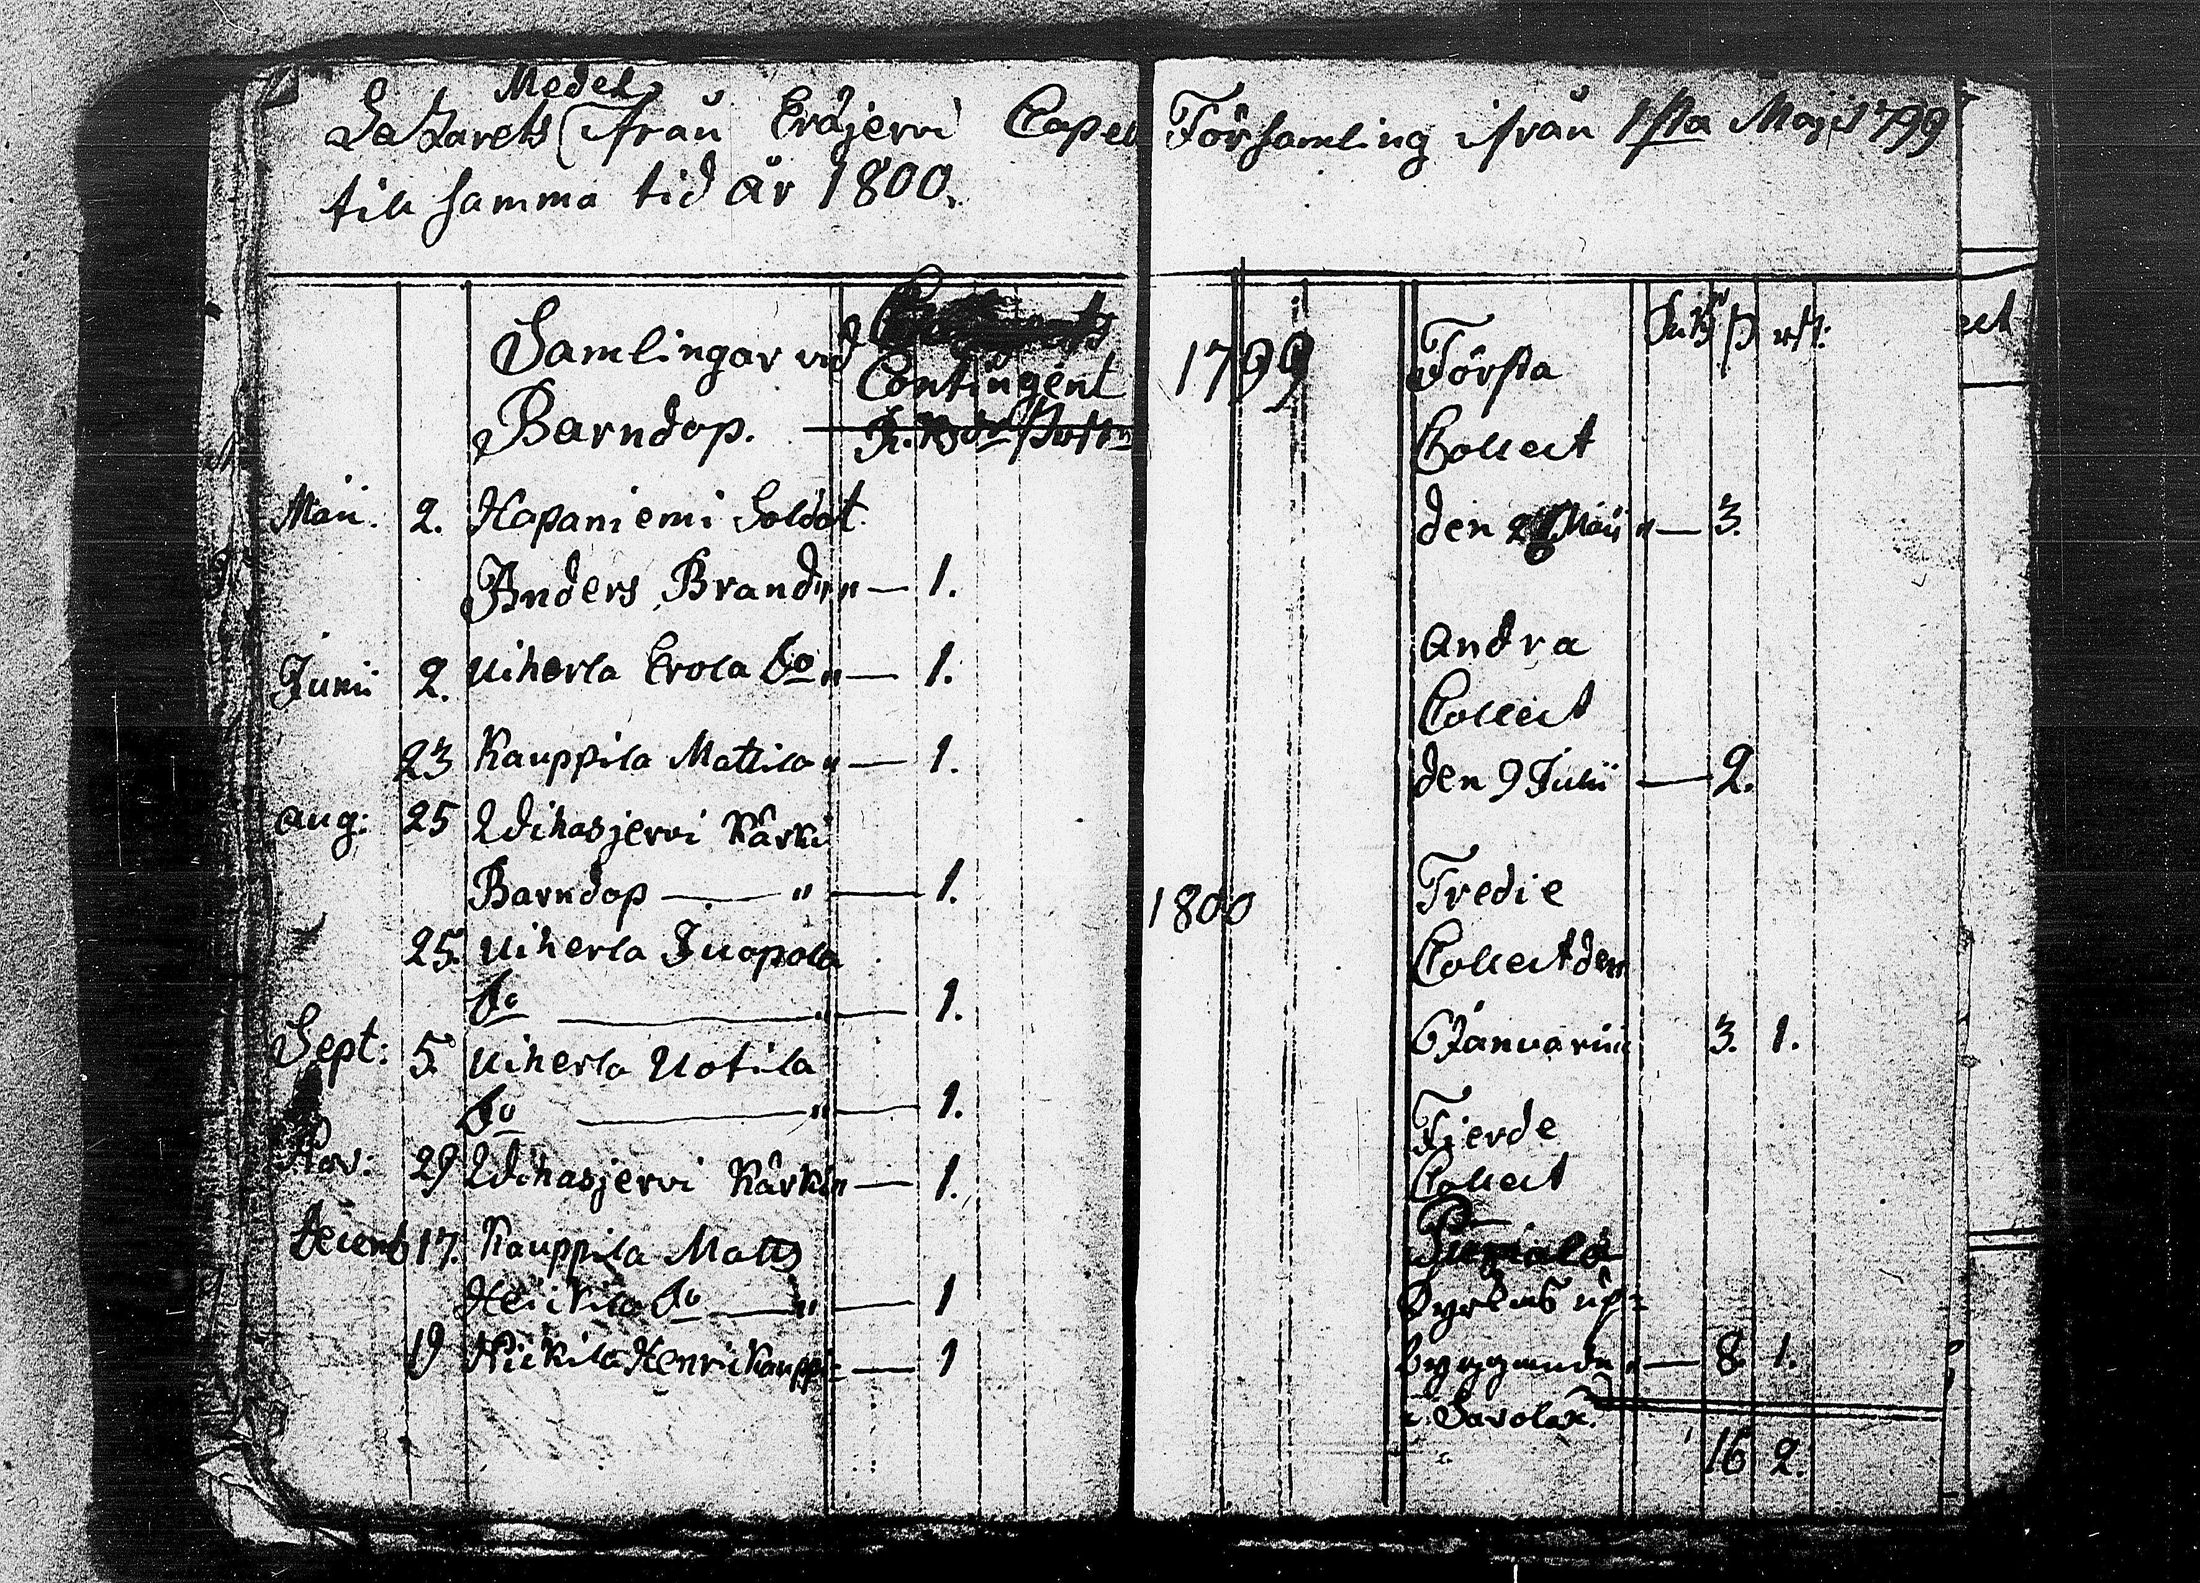 Medel
Lazarets från Eräjervi Capell Församling ifrån 1sta Maji 1799
till samma tid år 1800.
Samlingar vid
Barndop.
Contingent
Maii. 2. Hapaniemi Soldat
Anders Brander " — 1.
Junii 2. Uiherla Erola Do " — 1.
23 Kauppila Mattila " — 1.
Aug: 25 Wihasjervi Kärki
Barndop — " — 1.
25. Uiherla Juopola
Do — " — 1.
Sept: 5. Uiherla Uotila
Do — " — 1.
Nov: 29 Wihasjervi Kärki " — 1.
Decemb 17. Kauppila Matts
Heickilä Do — " — 1
19 Heickilä Henric Kauppi — 1
1799
Första
Collect
den Maii " — 3.
Andra
Collect
den 9 Julii — 2.
1800
Tredie
Collect den
6 Januarii 3. 1.
Fjerde
Collect
Kyrkas up-
byggande " — 8 1.
i Savolax.
16 2.